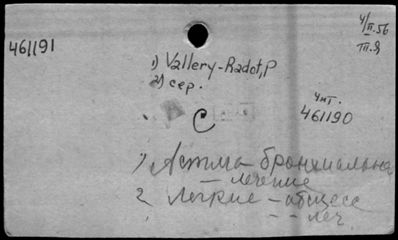 461191
4/II.56
III.Я
1) Vallery-Radot, P
2) сер.
С
чит.
461190
1) Астма-бронхиальна
– лечение
2 Легкие – абсцесс
– – леч.